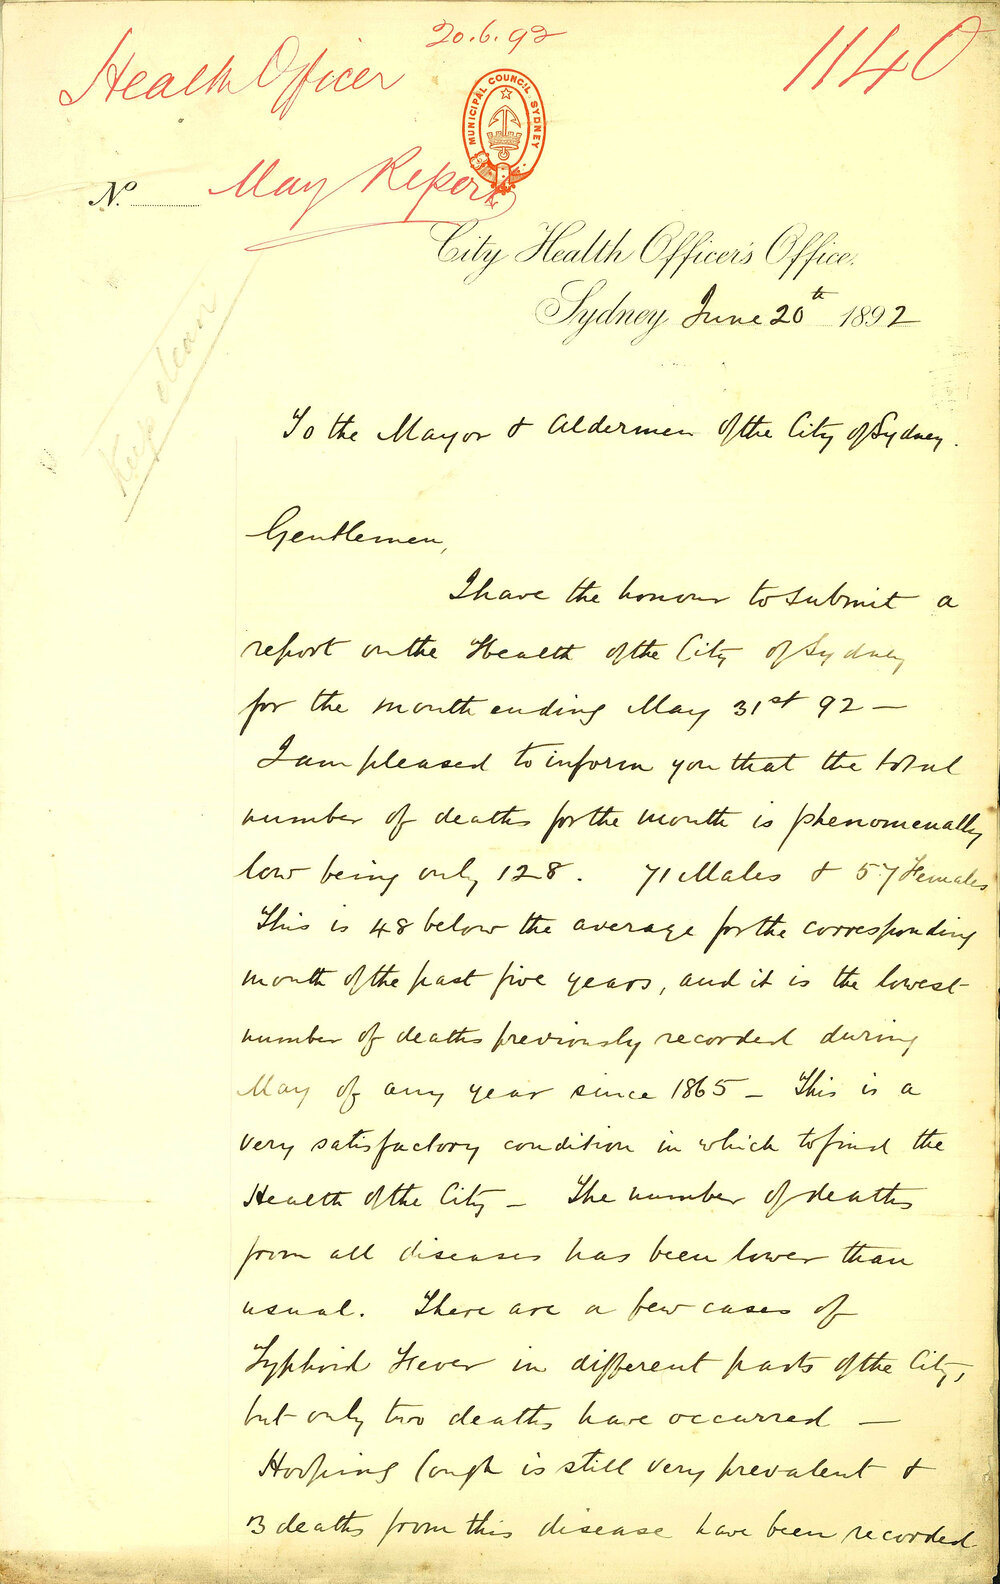 20.6.92
Health Officer
1140
MUNICIPAL COUNCIL SYDNEY
No. May Report
City Health Officer's Office.
Sydney June 20th 1892
Keep clean
To the Mayor & Aldermen of the City of Sydney.
Gentlemen,
I have the honour to submit a
report on the Health of the City of Sydney
for the month ending May 31st 92 —
I am pleased to inform you that the total
number of deaths for the month is phenomenally
low being only 128. 71 Males & 57 Females
This is 48 below the average for the corresponding
month of the past five years, and it is the lowest
number of deaths previously recorded during
May of any year since 1865 — This is a
very satisfactory condition in which to find the
Health of the City — The number of deaths
from all diseases has been lower than
usual. There are a few cases of
Typhoid Fever in different parts of the City,
but only two deaths have occurred —
Hooping Cough is still very prevalent &
3 deaths from this disease have been recorded